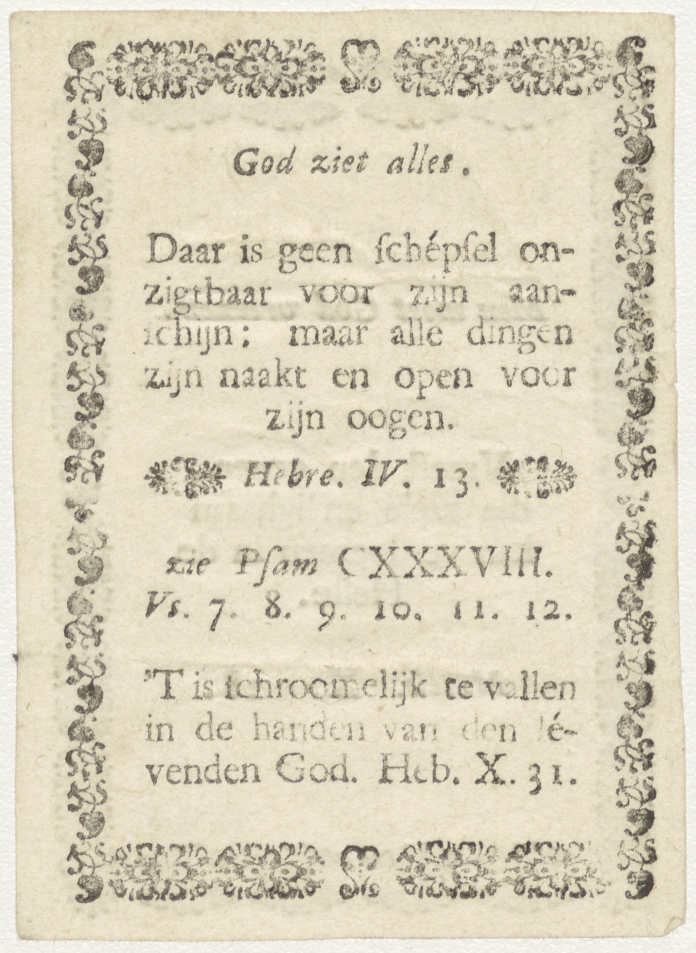 God ziet alles.
Daar is geen ſchépſel on-
zigtbaar voor zijn aan-
ſchijn; maar alle dingen
zijn naakt en open voor
zijn oogen.
Hebre. IV. 13.
zie Pſam CXXXVIII.
Vs. 7. 8. 9. 10. 11. 12.
'T is ſchroomelijk te vallen
in de handen van den lé-
venden God. Heb. X. 31.